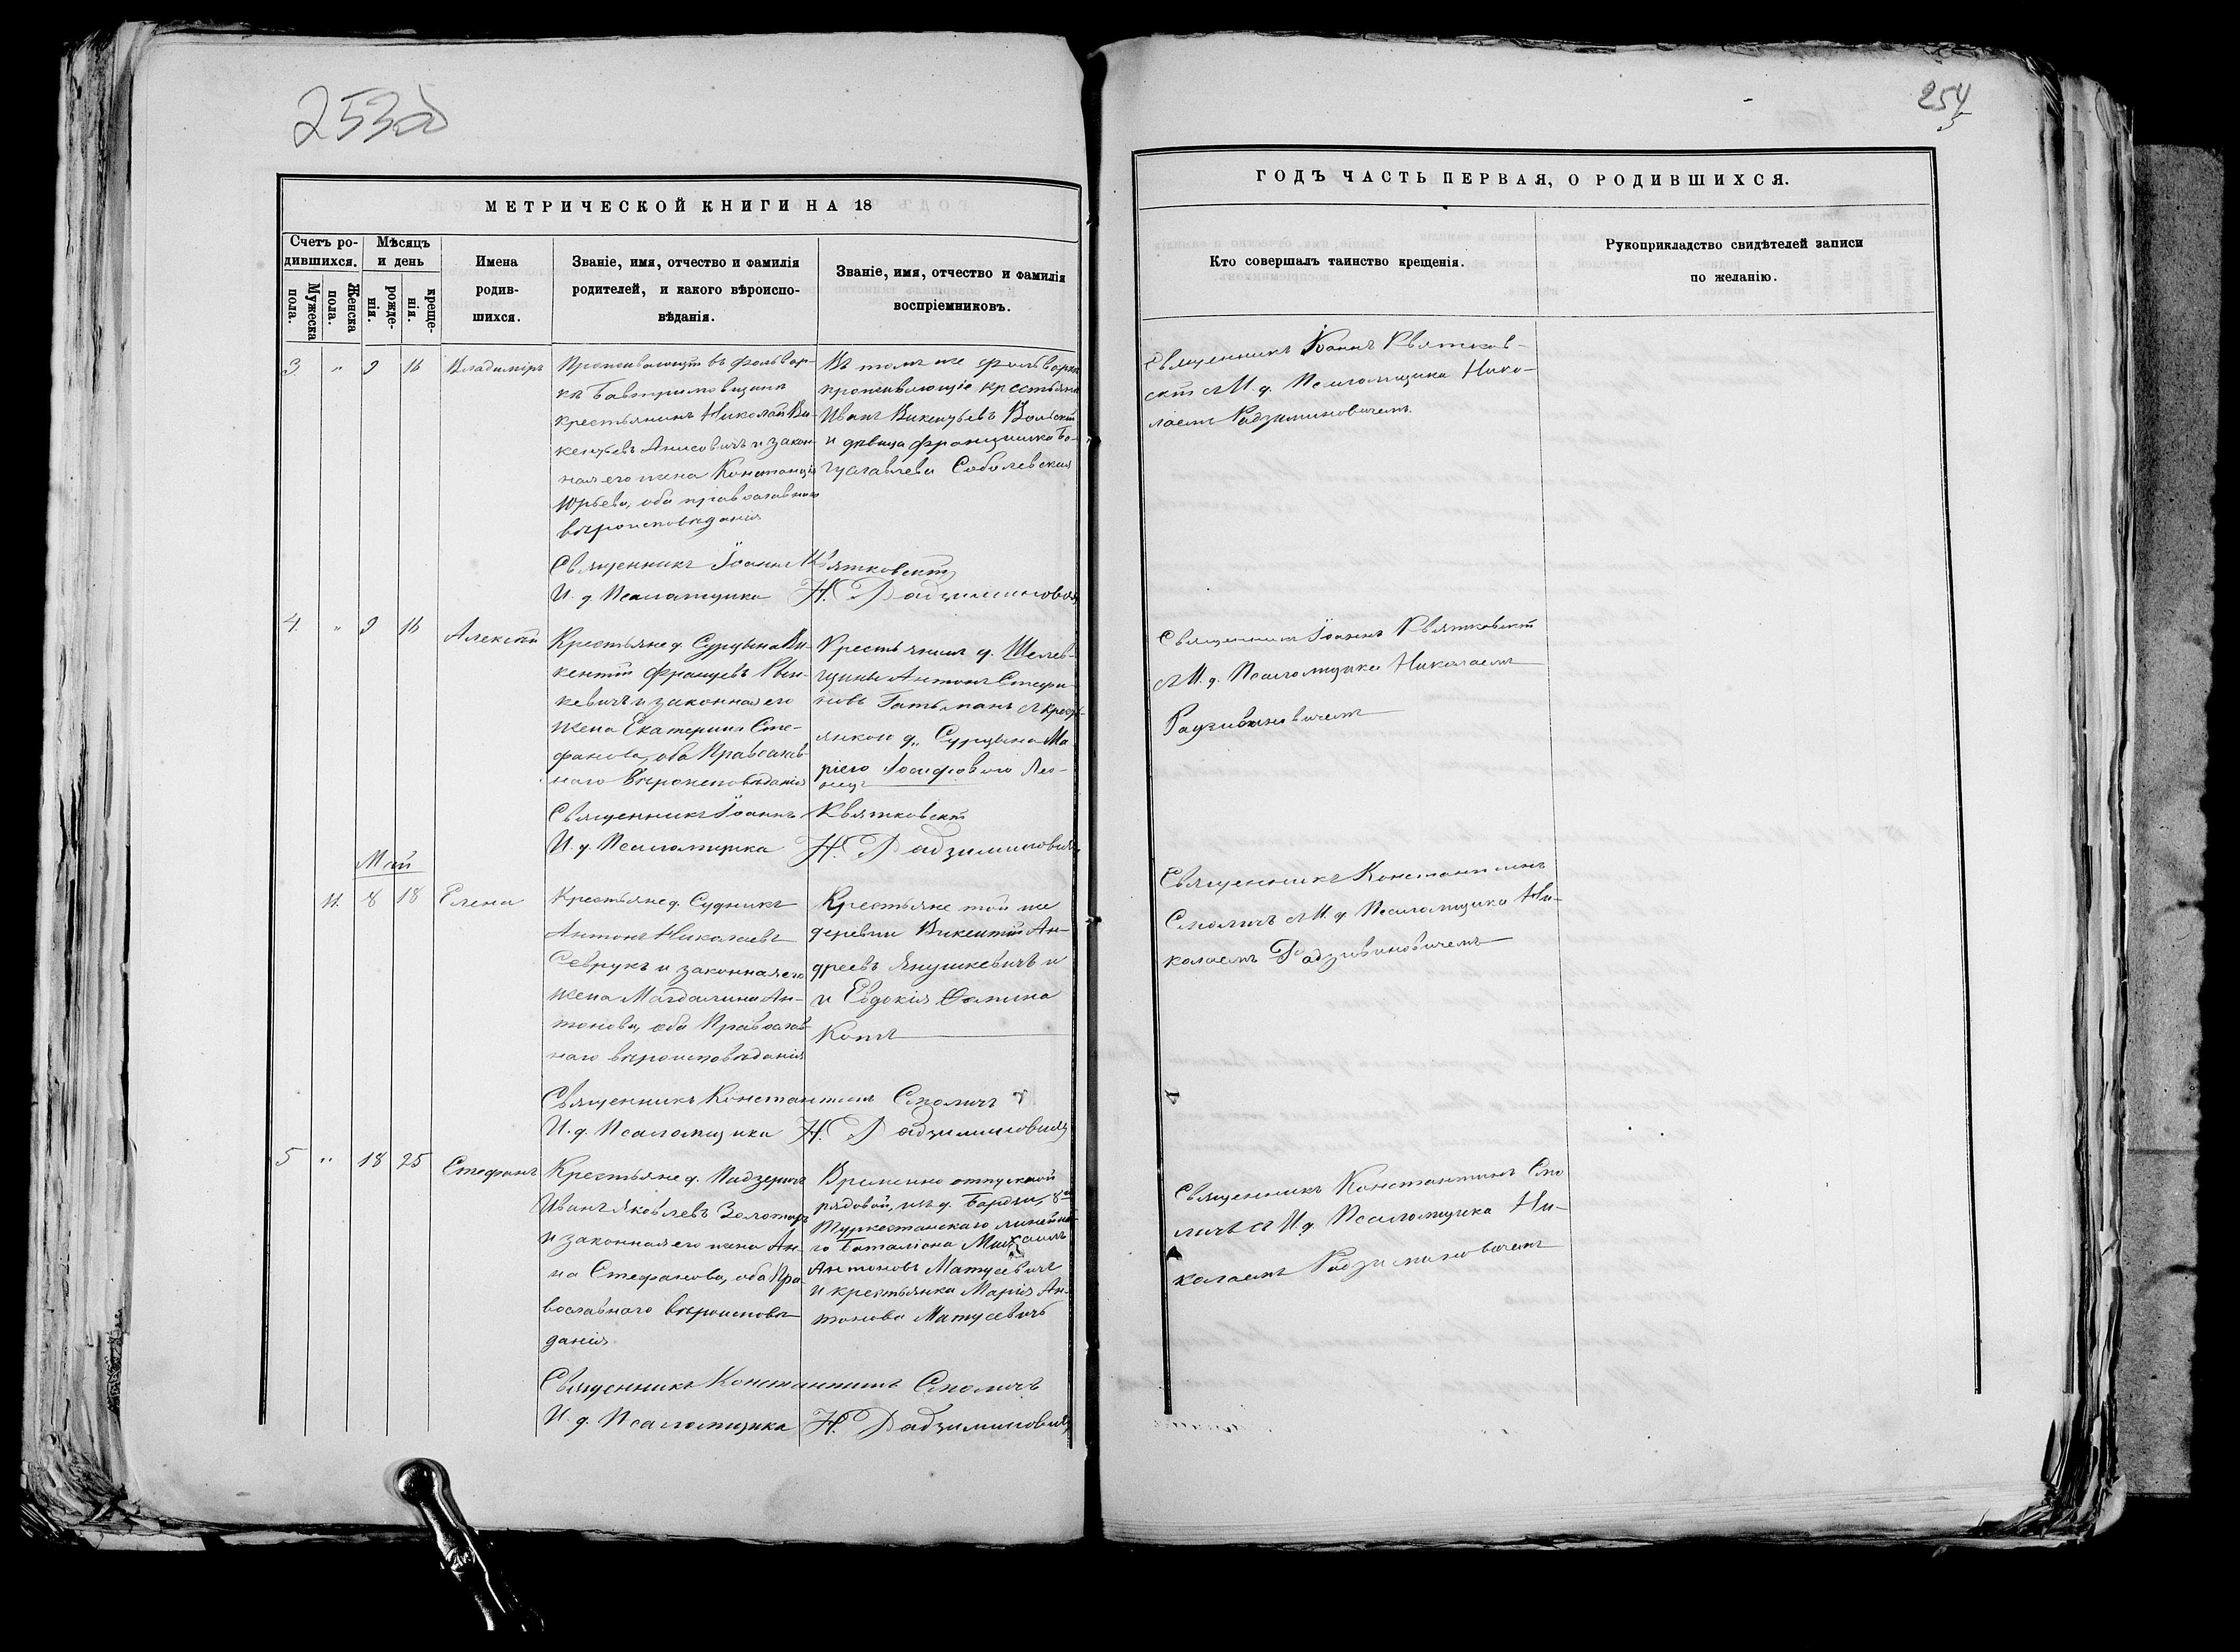 253об
254
МЕТРИЧЕСКОЙ КНИГИ НА 18
Счетъ ро-
дившихся.
Мужеска
пола.
Женска
пола.
Мѣсяцъ
и день
рожде-
нія.
креще-
нія.
Имена
родив-
шихся.
Званіе, имя, отчество и фамилія
родителей, и какого вѣроиспо-
вѣданія.
Званіе, имя, отчество и фамилія
воспріемниковъ.
3. " 9 16 Владиміръ
Проживающій въ фольвар-
кѣ
крестьянинъ Николай Ви-
кентьевъ Анисовичъ и закон-
ная его жена Констанція
Юрьева, оба православнаго
вѣроисповѣданія
Въ томъ же фольваркѣ
проживающіе крестьяне
Иванъ Викентьевъ Вольскій
и дѣвица Францишка Бо-
гуславлева Соболевская
Священникъ Іоаннъ Квятковскій
И. д. Псаломщика Н. Радзиминовичъ
4. " 9 16 Алексѣй
Крестьяне д. Ви-
кентій Францевъ
кевичъ и законная его
жена Екатерина Сте-
фанова, оба Православ-
наго Вѣроисповѣданія
Крестьянинъ д. Шелев-
щины Антонъ Стефа-
новъ Гатьманъ съ кресть-
янкою д.. Ма-
ріею Іосифовою
Священникъ Іоаннъ Квятковскій
И. д. Псаломщика Н. Радзиминовичъ
Май
8 18 Елена
Крестьяне д. Судникъ
Антонъ Николаевъ
Севрукъ и законная его
жена Магдалина Ан-
тонова, оба Православ-
наго вѣроисповѣданія
Крестьяне той же
деревни Викентій Ан-
дреевъ Янушкевичъ и
и Евдокія Фомина
Котъ
Священникъ Константинъ Смоличъ
И. д. Псаломщика Н. Радзиминовичъ
5 " 18 25 Стефанъ
Крестьяне д.
Иванъ Яковлевъ Золотарь
и законная его жена Ан-
на Стефанова, оба Пра-
вославнаго вѣроисповѣ-
данія
Временно отпускной
рядовой, изъ д. 8го
Туркестанскаго линейна-
го Баталіона Михаилъ
Антоновъ Матусевичъ
и крестьянка Марія Ан-
тонова Матусевичъ
Священникъ Константинъ Смоличъ
И. д. Псаломщика Н. Радзиминовичъ
ГОДЪ ЧАСТЬ ПЕРВАЯ, О РОДИВШИХСЯ.
Кто совершалъ таинство крещенія.
Рукоприкладство свидѣтелей записи
по желанію.
Священникъ Іоаннъ Квятков-
скій съ И. д. Псаломщика Нико-
лаемъ Радзиминовичемъ
Священникъ Іоаннъ Квятковскій
съ И. д. Псаломщика Николаемъ
Радзивиновичемъ
Священникъ Константинъ
Смоличъ съ И. д. Псаломщика Ни-
колаемъ Радзивиновичемъ
Священникъ Константинъ Смо
личъ съ И. д. Псаломщика Ни-
колаемъ Радзиминовичемъ